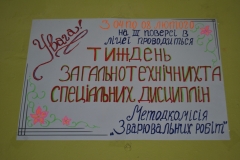 Увага!
на III поверсі в
ліцеї проводиться
ТИЖДЕНЬ
ЗАГАЛЬНОТЕХНІЧНИХ ТА
СПЕЦІАЛЬНИХ ДИСЦИПЛІН
Методкомісія
„Зварювальних робіт"